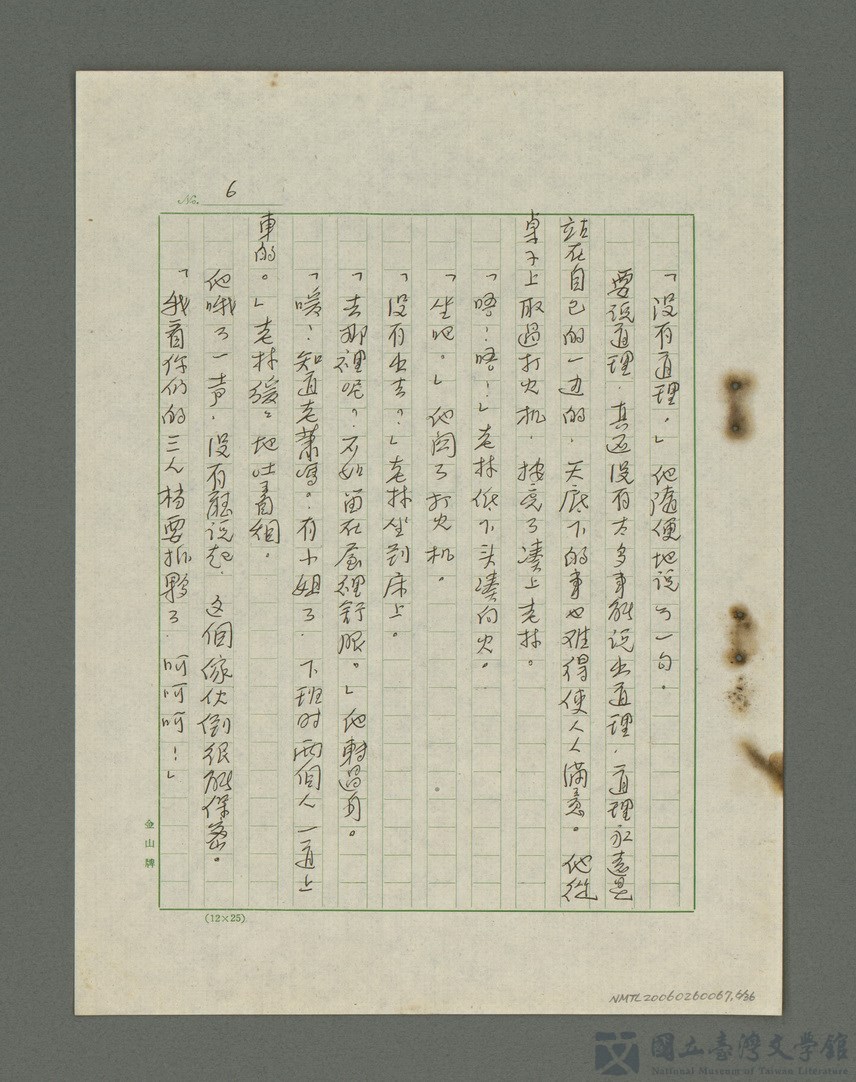 No. 6
「沒有道理，」他隨便地說了一句．
要說道理．其这沒有太多事能說出道理．道理永遠是
站在自己的一边的．天底下的事也难得使人人滿意。他從
桌子上取過打火机．按亮了湊上老林。
「唔！唔！」老林低下头湊向火。
「坐吧。」他関了打火机。
「沒有出去？」老林坐到床上。
「去那裡呢？不如留在屋裡舒服。」他轉過身。
「噯！知道老蕭嗎。有小姐了．下班时兩個人一道上
車的。」老林緩々地吐着烟。
他哦了一声．沒有聽說起．这個傢伙倒很能保密。
「我看你们的三人档要拆夥了．呵呵呵！」
金山牌
(12×25)
NMTL20060260067,6/36
國立臺灣文學館
National Museum of Taiwan Literature